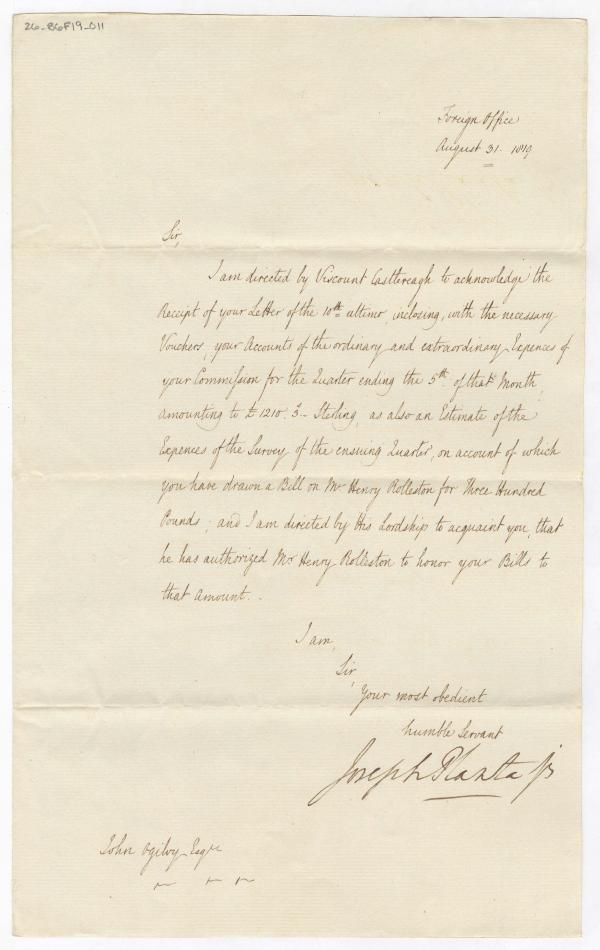 26-B6F19-011
Foreign Office
August 31. 1819
Sir,
I am directed by Viscount Castlereagh to acknowledge the
Receipt of your Letter of the 10th ultimo, inclosing, with the necessary
Vouchers, your Accounts of the ordinary and extraordinary Expences of
your Commission for the Quarter ending the 5th of that Month,
amounting to £1210. 3.- Sterling, as also an Estimate of the
Expences of the Survey of the ensuing Quarter, on account of which
you have drawn a Bill on Mr Henry Rolleston for Three Hundred
Pounds; and I am directed by His Lordship to acquaint you, that
he has authorized Mr Henry Rolleston to honor your Bills to
that amount..
I am,
Sir,
Your most obedient
humble Servant
Joseph Planta Jr
John Ogilvy Esqre